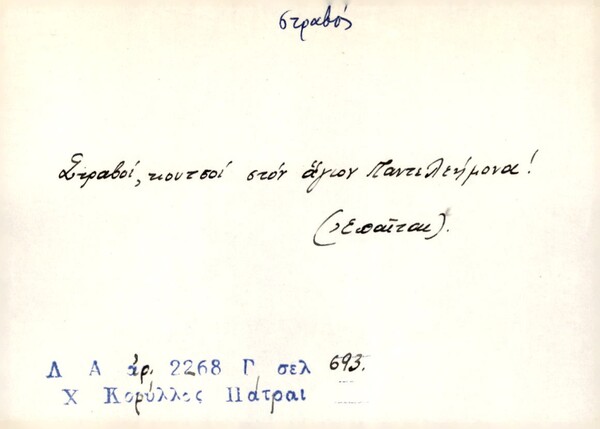 στραβός
Στραβοί, κουτσοί στόν ἅγιον Παντελεήμονα!
(Ἐπαῖται).
Λ Α ἀρ. 2268 Γ σελ 693.
Χ Κορύλλος Πάτραι